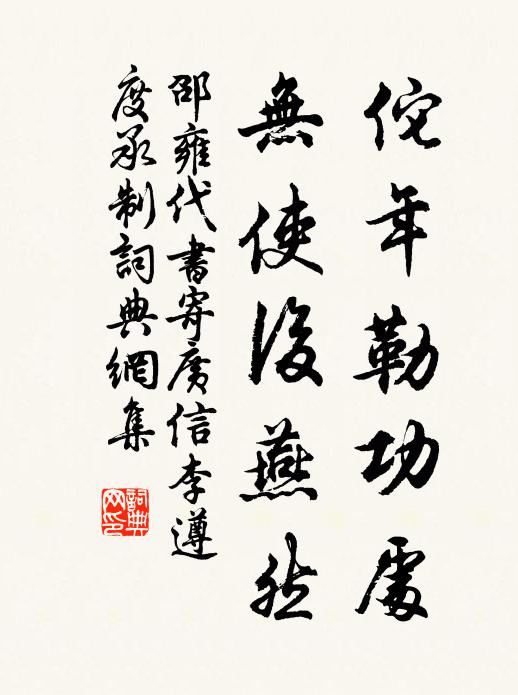 侘年勒功處
無使後燕然
邵雍代書寄廣信李遵
度承制詞典網集
詞典网印